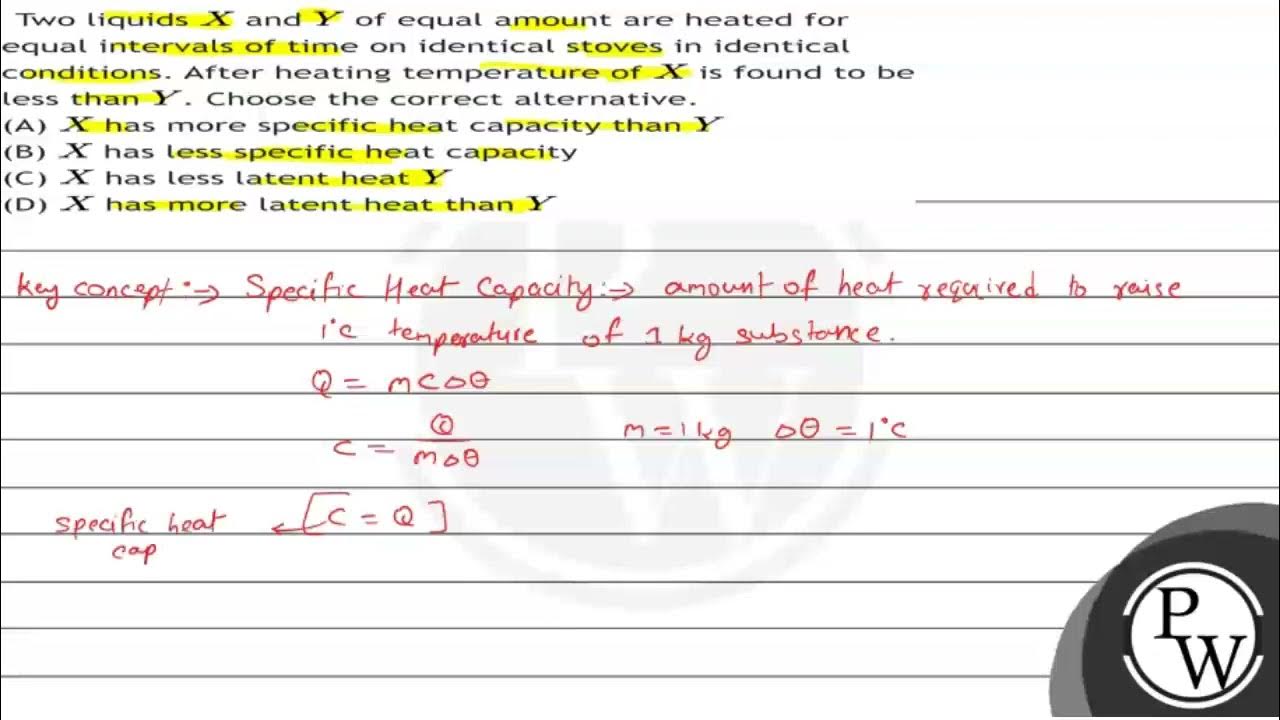 Two liquids X and Y of equal amount are heated for
equal intervals of time on identical stoves in identical
conditions. After heating temperature of X is found to be
less than Y. Choose the correct alternative.
(A) X has more specific heat capacity than Y
(B) X has less specific heat capacity
(C) X has less latent heat Y
(D) X has more latent heat than Y
key concept :→ Specific Heat Capacity :→ amount of heat required to raise
1°C temperature of 1 kg substance.
Q = mCΔθ
C = Q / mΔθ m = 1 kg Δθ = 1°C
specific heat ← [C = Q]
cap
PW